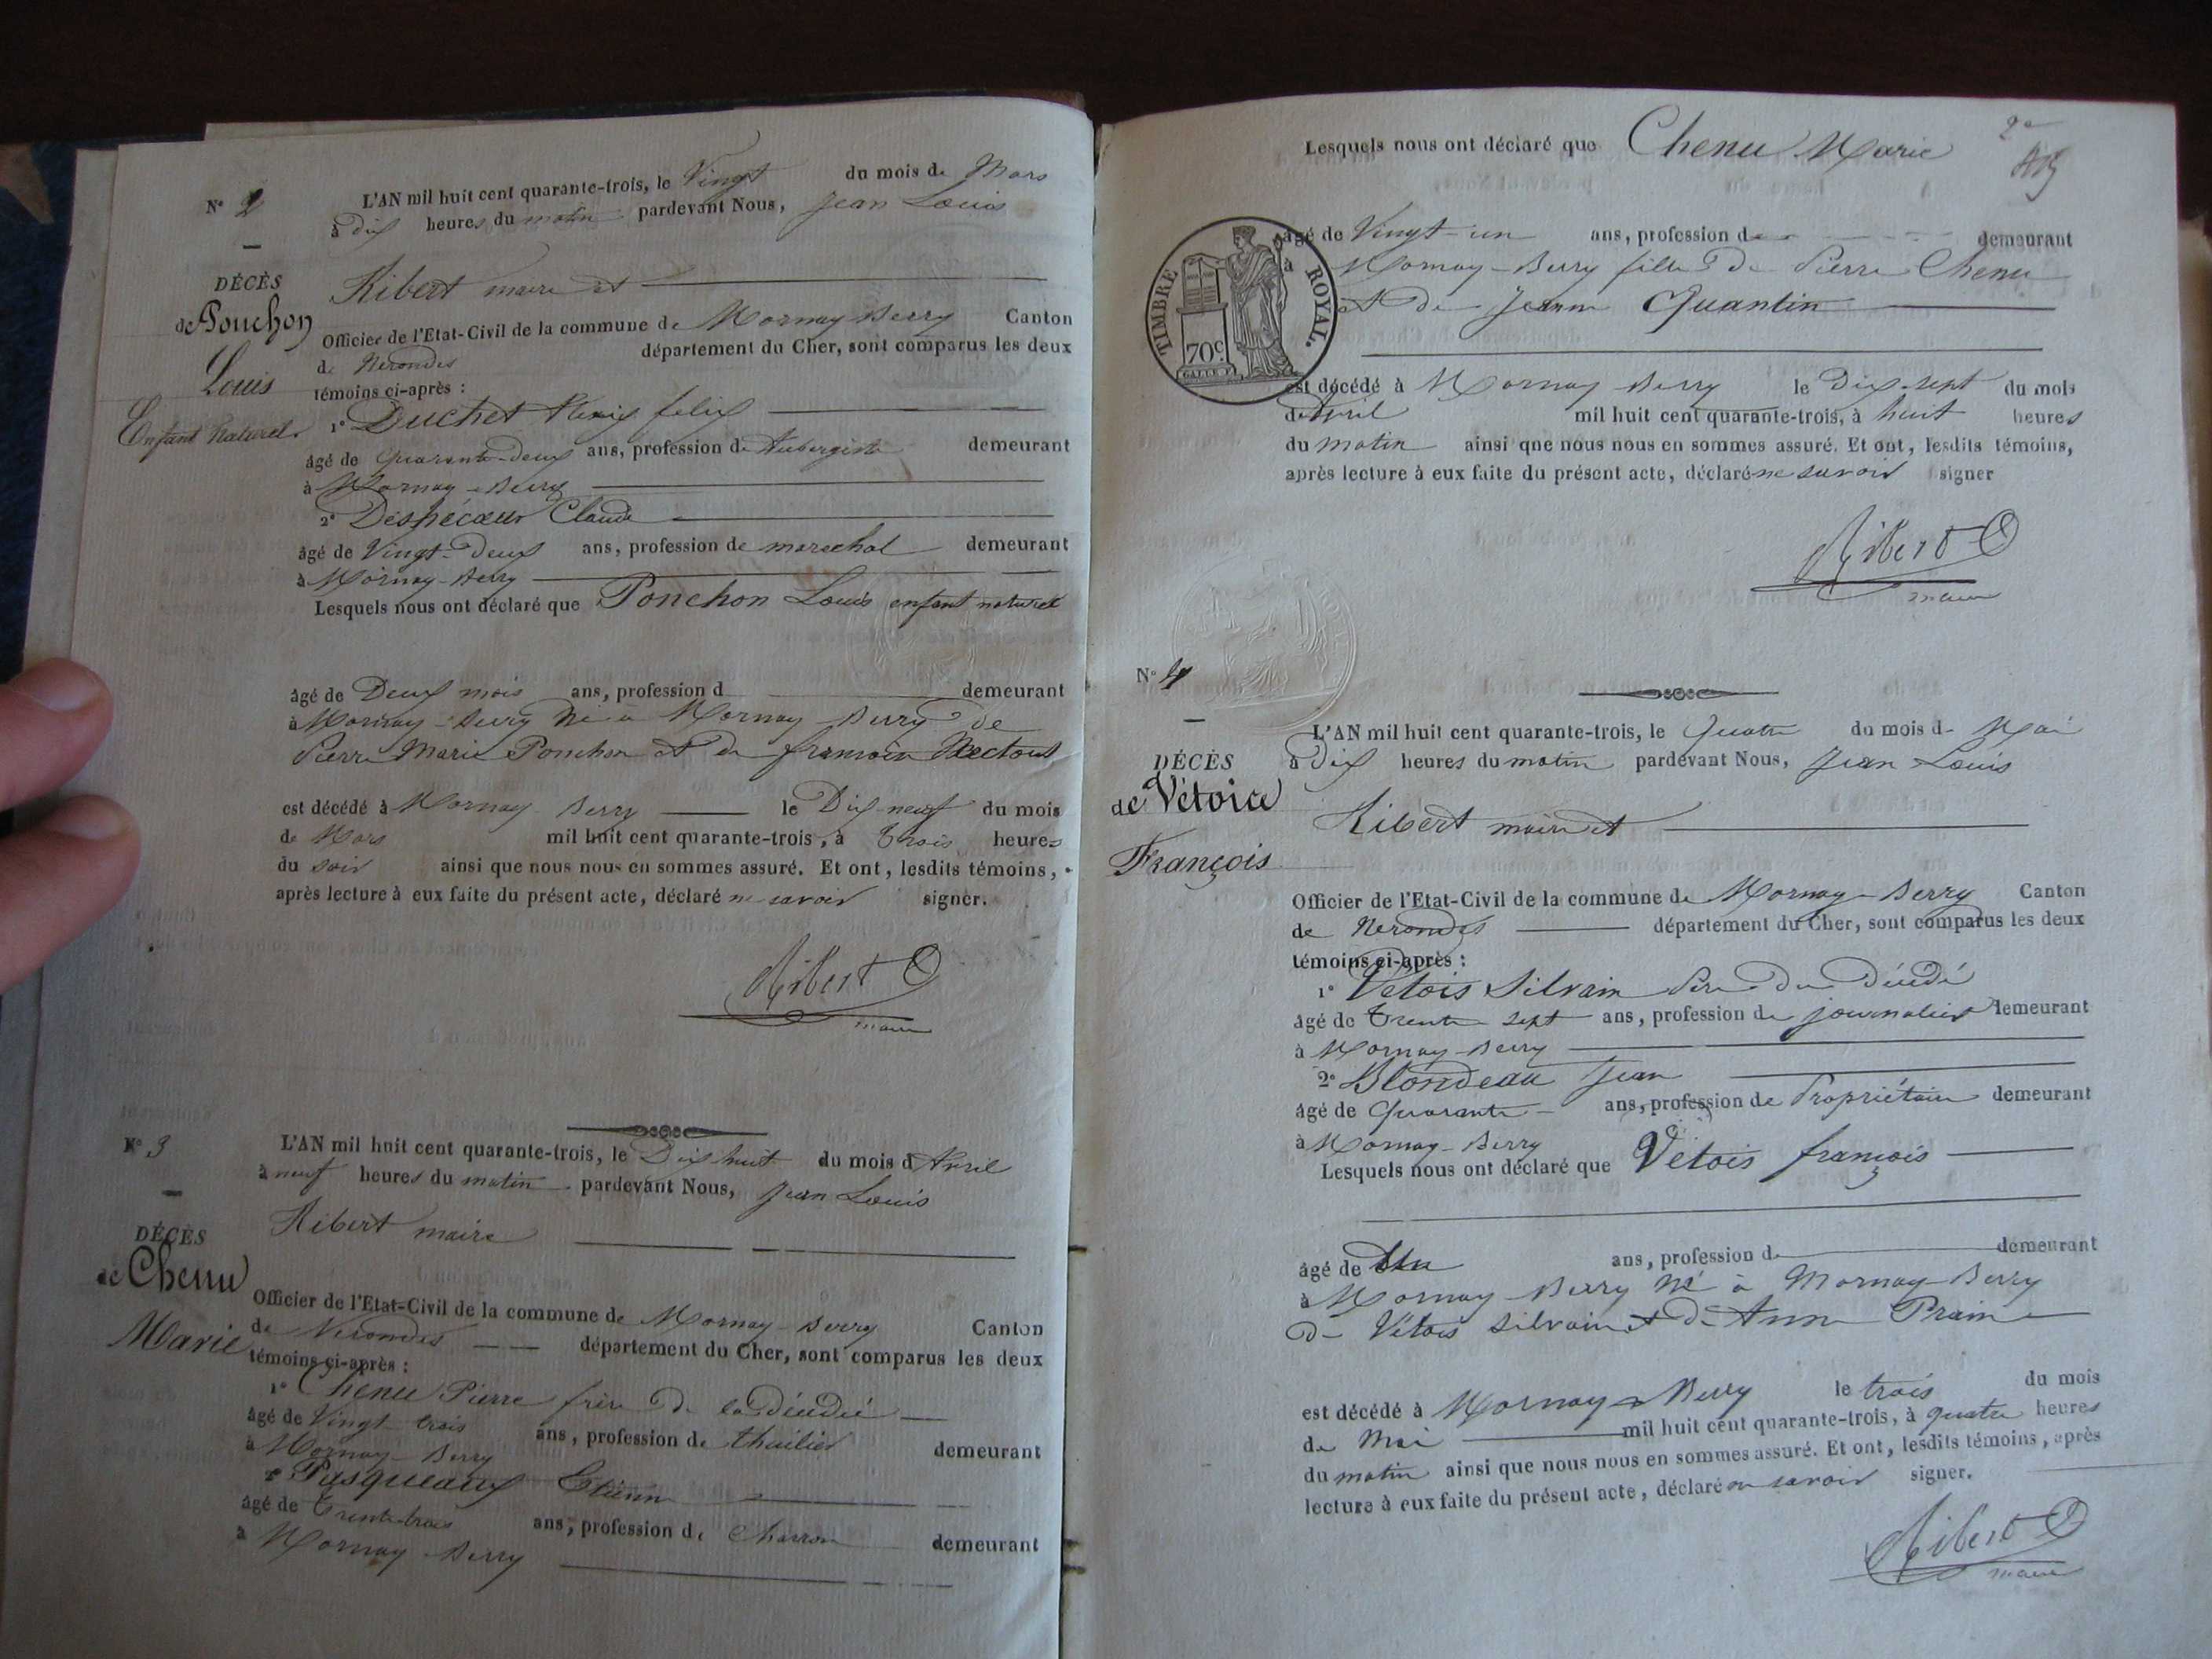 N° 2
DÉCÈS
de Ponchon
Louis
Enfant Naturel
L'AN mil huit cent quarante-trois, le Vingt du mois de Mars
à dix heures du matin pardevant Nous, Jean Louis
Ribert maire et
Officier de l'Etat-Civil de la commune de Mornay-Berry Canton
de Nerondes département du Cher, sont comparus les deux
témoins ci-après :
1° Duchet Alexis felix
âgé de quarante-deux ans, profession de Aubergiste demeurant
à Mornay-Berry
2° Despécœur Claude
âgé de Vingt-Deux ans, profession de marechal demeurant
à Mornay-Berry
Lesquels nous ont déclaré que Ponchon Louis enfant naturel
âgé de Deux mois ans, profession d demeurant
à Mornay-Berry Né à Mornay-Berry de
Pierre Marie Ponchon et de francoise
est décédé à Mornay Berry le Dix-neuf du mois
de Mars mil huit cent quarante-trois, à trois heures
du soir ainsi que nous nous en sommes assuré. Et ont, lesdits témoins,
après lecture à eux faite du présent acte, déclaré ne savoir signer.
Ribert
maire
N° 3
DÉCÈS
de Chenu
Marie
L'AN mil huit cent quarante-trois, le Dix huit du mois d'Avril
à neuf heures du matin pardevant Nous, Jean Louis
Ribert maire
Officier de l'Etat-Civil de la commune de Mornay-Berry Canton
de Nerondes département du Cher, sont comparus les deux
témoins ci-après :
1° Chenu Pierre frère de la décédé
âgé de Vingt trois ans, profession de thuilier demeurant
à Mornay-Berry
2° Pasqueaux Etienne
âgé de Trente-trois ans, profession de Charron demeurant
à Mornay-Berry
2e
Lesquels nous ont déclaré que Chenu Marie
TIMBRE ROYAL.
70c.
âgé de Vingt-un ans, profession de demeurant
à Mornay-Berry fille de Pierre Chenu
et de Jeanne Quantin
est décédé à Mornay Berry le Dix-sept du mois
d'Avril mil huit cent quarante-trois, à huit heures
du matin ainsi que nous nous en sommes assuré. Et ont, lesdits témoins,
après lecture à eux faite du présent acte, déclaré ne savoir signer
Ribert
maire
N° 4
DÉCÈS
de Vétoice
François
L'AN mil huit cent quarante-trois, le Quatre du mois d Mai
à Dix heures du matin pardevant Nous, Jean Louis
Ribert maire et
Officier de l'Etat-Civil de la commune de Mornay-Berry Canton
de Nerondes département du Cher, sont comparus les deux
témoins ci-après :
1° Vetois Silvain Père du Décédé
âgé de trente sept ans, profession de journalier demeurant
à Mornay-Berry
2° Blondeau Jean
âgé de Quarante ans, profession de Propriétaire demeurant
à Mornay-Berry
Lesquels nous ont déclaré que Vetois francois
âgé de Un ans, profession d demeurant
à Mornay Berry Né à Mornay-Berry
De Vétois silvain et d'Anne
est décédé à Mornay-Berry le trois du mois
de Mai mil huit cent quarante-trois, à quatre heures
du matin ainsi que nous nous en sommes assuré. Et ont, lesdits témoins, après
lecture à eux faite du présent acte, déclaré ne savoir signer.
Ribert
maire